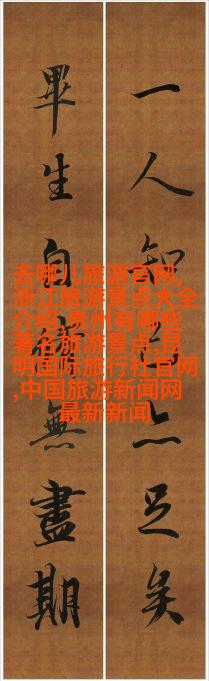 一人知己亦足矣
畢生自修無盡期
去哪儿旅游官网,
浙江旅游景点大全
介绍,贵州有哪些
著名旅游景点,昆
明国际旅行社官网
,中国旅游新闻网
最新新闻